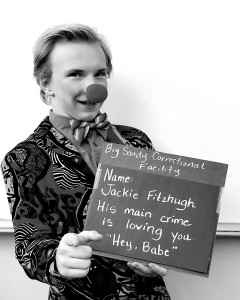 Big Sandy Correctional
Facility
Name:
Jackie Fitzhugh
His main crime
is loving you
"Hey, Babe"